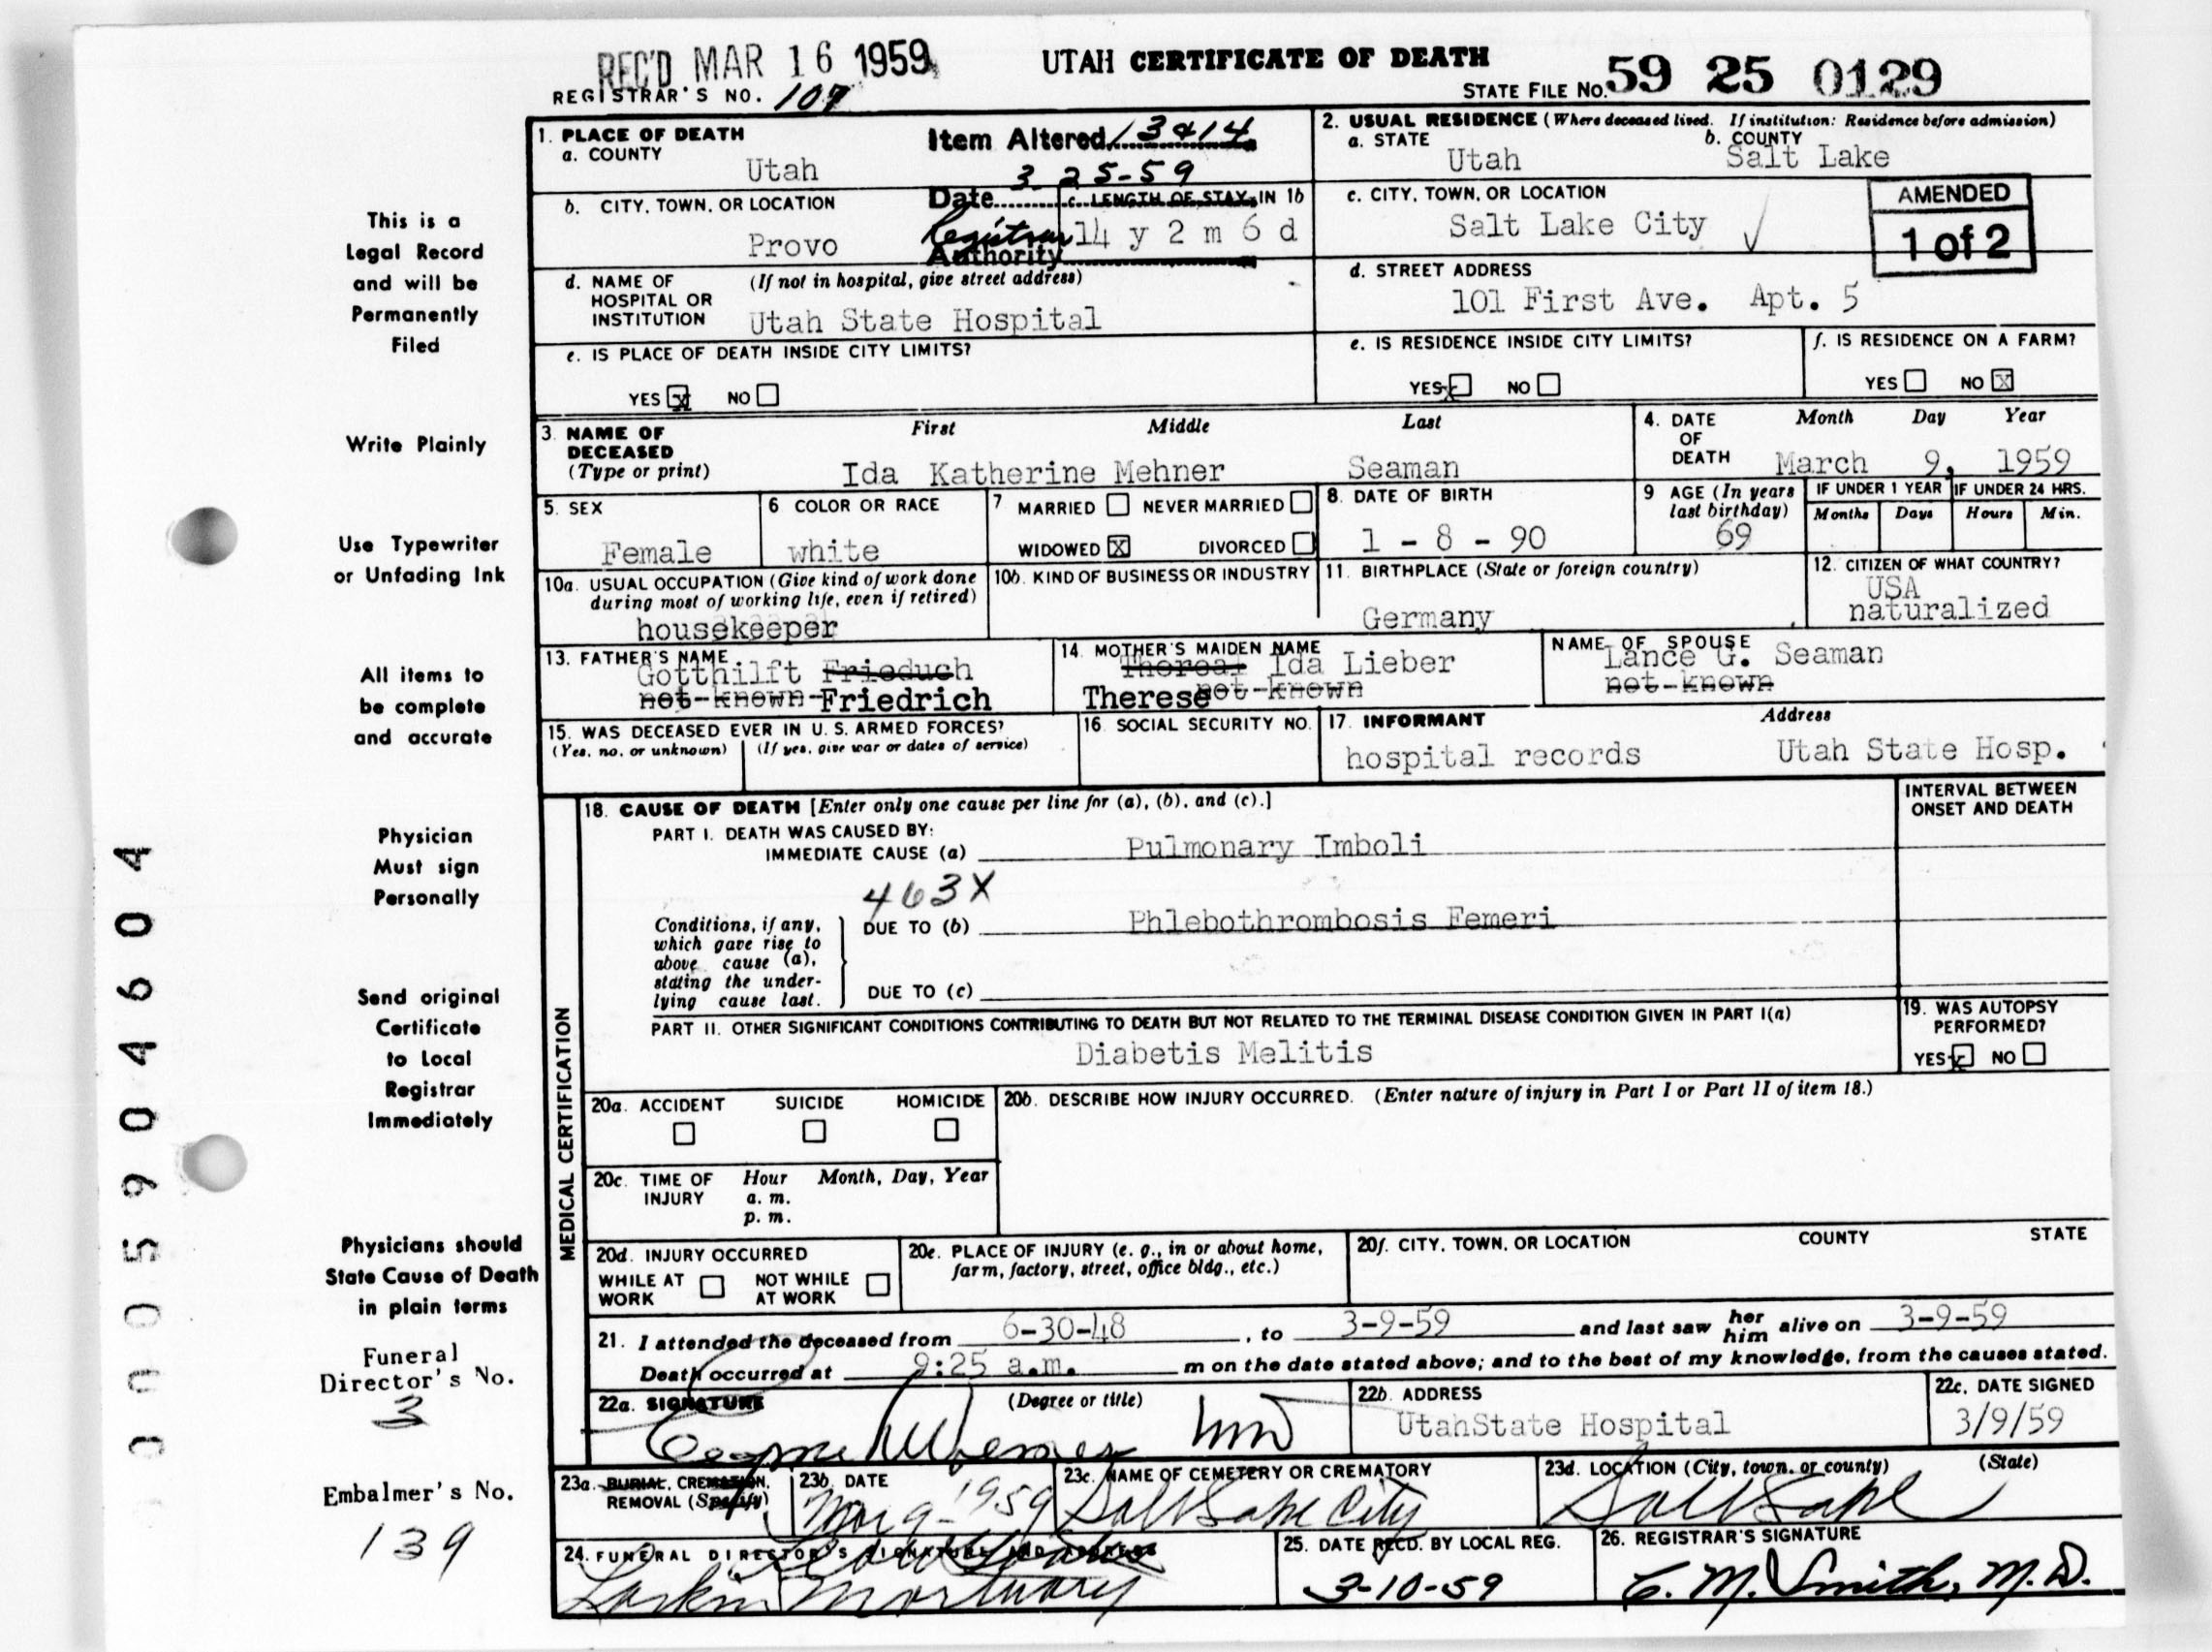 REC'D MAR 16 1959
UTAH CERTIFICATE OF DEATH
REGISTRAR'S NO. 107
STATE FILE NO. 59 25 0129
1. PLACE OF DEATH
a. COUNTY
Utah
Item Altered 13&14
3 25-59
Date
Registrar
Authority
2. USUAL RESIDENCE (Where deceased lived. If institution: Residence before admission)
a. STATE
Utah
b. COUNTY
Salt Lake
b. CITY, TOWN, OR LOCATION
Provo
c. LENGTH OF STAY IN 1b
14 y 2 m 6 d
c. CITY, TOWN, OR LOCATION
Salt Lake City
AMENDED
1 of 2
d. NAME OF HOSPITAL OR INSTITUTION
(If not in hospital, give street address)
Utah State Hospital
d. STREET ADDRESS
101 First Ave. Apt. 5
e. IS PLACE OF DEATH INSIDE CITY LIMITS?
YES X NO
e. IS RESIDENCE INSIDE CITY LIMITS?
YES X NO
f. IS RESIDENCE ON A FARM?
YES NO X
3. NAME OF DECEASED (Type or print)
First Middle Last
Ida Katherine Mehner Seaman
4. DATE OF DEATH
Month Day Year
March 9, 1959
5. SEX
Female
6 COLOR OR RACE
white
7 MARRIED NEVER MARRIED
WIDOWED X DIVORCED
8. DATE OF BIRTH
1 - 8 - 90
9 AGE (In years last birthday)
69
IF UNDER 1 YEAR
Months Days
IF UNDER 24 HRS.
Hours Min.
10a. USUAL OCCUPATION (Give kind of work done during most of working life, even if retired)
housekeeper
10b. KIND OF BUSINESS OR INDUSTRY
11. BIRTHPLACE (State or foreign country)
Germany
12. CITIZEN OF WHAT COUNTRY?
USA
naturalized
13. FATHER'S NAME
Gotthilft Frieduch
not-known Friedrich
14. MOTHER'S MAIDEN NAME
Ida Lieber
Therese not-known
NAME OF SPOUSE
Lance G. Seaman
not-known
15. WAS DECEASED EVER IN U. S. ARMED FORCES?
(Yes, no, or unknown) (If yes, give war or dates of service)
16. SOCIAL SECURITY NO.
17. INFORMANT Address
hospital records Utah State Hosp.
MEDICAL CERTIFICATION
18. CAUSE OF DEATH [Enter only one cause per line for (a), (b), and (c).]
INTERVAL BETWEEN ONSET AND DEATH
PART I. DEATH WAS CAUSED BY:
IMMEDIATE CAUSE (a) Pulmonary Imboli
463X
Conditions, if any, which gave rise to above cause (a), stating the underlying cause last.
DUE TO (b) Phlebothrombosis Femeri
DUE TO (c)
PART II. OTHER SIGNIFICANT CONDITIONS CONTRIBUTING TO DEATH BUT NOT RELATED TO THE TERMINAL DISEASE CONDITION GIVEN IN PART I(a)
Diabetis Melitis
19. WAS AUTOPSY PERFORMED?
YES X NO
20a. ACCIDENT SUICIDE HOMICIDE
20b. DESCRIBE HOW INJURY OCCURRED. (Enter nature of injury in Part I or Part II of item 18.)
20c. TIME OF INJURY Hour a. m. p. m. Month, Day, Year
20d. INJURY OCCURRED
WHILE AT WORK NOT WHILE AT WORK
20e. PLACE OF INJURY (e. g., in or about home, farm, factory, street, office bldg., etc.)
20f. CITY, TOWN, OR LOCATION COUNTY STATE
21. I attended the deceased from 6-30-48, to 3-9-59 and last saw her him alive on 3-9-59
Death occurred at 9:25 a.m. m on the date stated above; and to the best of my knowledge, from the causes stated.
22a. SIGNATURE (Degree or title)
MD
22b. ADDRESS
UtahState Hospital
22c. DATE SIGNED
3/9/59
23a. BURIAL, CREMATION, REMOVAL (Specify)
23b. DATE
Mar 9 - 1959
23c. NAME OF CEMETERY OR CREMATORY
Salt Lake City
23d. LOCATION (City, town, or county) (State)
Salt Lake
24. FUNERAL DIRECTOR'S SIGNATURE AND ADDRESS
Larkin Mortuary
25. DATE RECD. BY LOCAL REG.
3-10-59
26. REGISTRAR'S SIGNATURE
C. M. Smith, M.D.
This is a
Legal Record
and will be
Permanently
Filed
Write Plainly
Use Typewriter
or Unfading Ink
All items to
be complete
and accurate
Physician
Must sign
Personally
Send original
Certificate
to Local
Registrar
Immediately
Physicians should
State Cause of Death
in plain terms
Funeral
Director's No.
3
Embalmer's No.
139
000 5904604